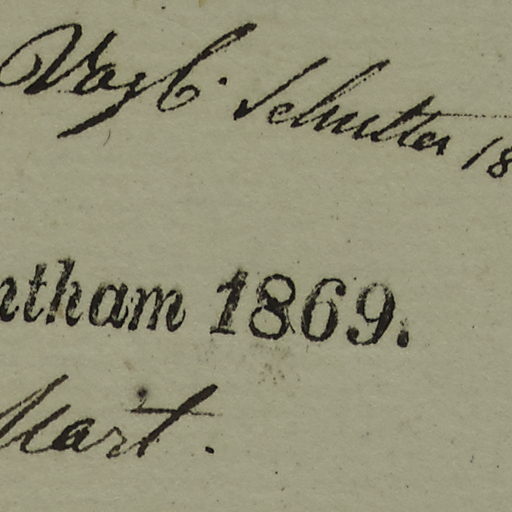 Vogl. Schutter 18
ntham 1869.
Mart.